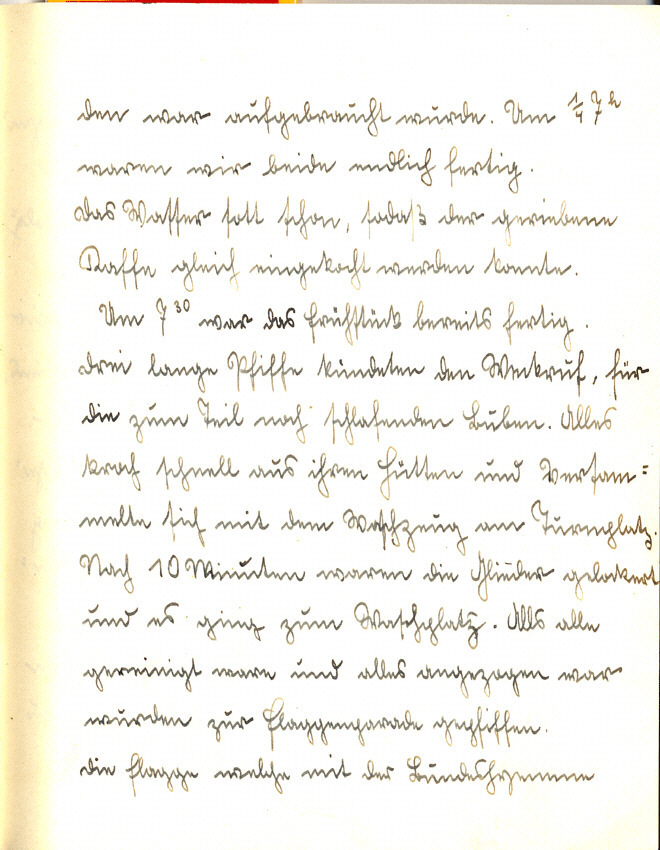 den war aufgebraucht wurde. Um 1/4 7 h
waren wir beide endlich fertig.
das Wasser sott schon, sodaß der geriebene
Kaffe gleich eingekocht werden konnte.
Um 7 30 war das Frühstück bereits fertig.
drei lange Pfiffe kündeten den Weckruf, für
die zum Teil noch schlafenden Buben. Alles
kroch schnell aus ihren Hütten und versam=
melte sich mit dem Waschzeug am Turnplatz.
Nach 10 Minuten waren die Glieder gelockert
und es ging zum Waschplatz. Als alle
gereinigt ware und alles angezogen war
wurden zur Flaggenparade gepfiffen.
die Flagge welche mit der Bundeshymne